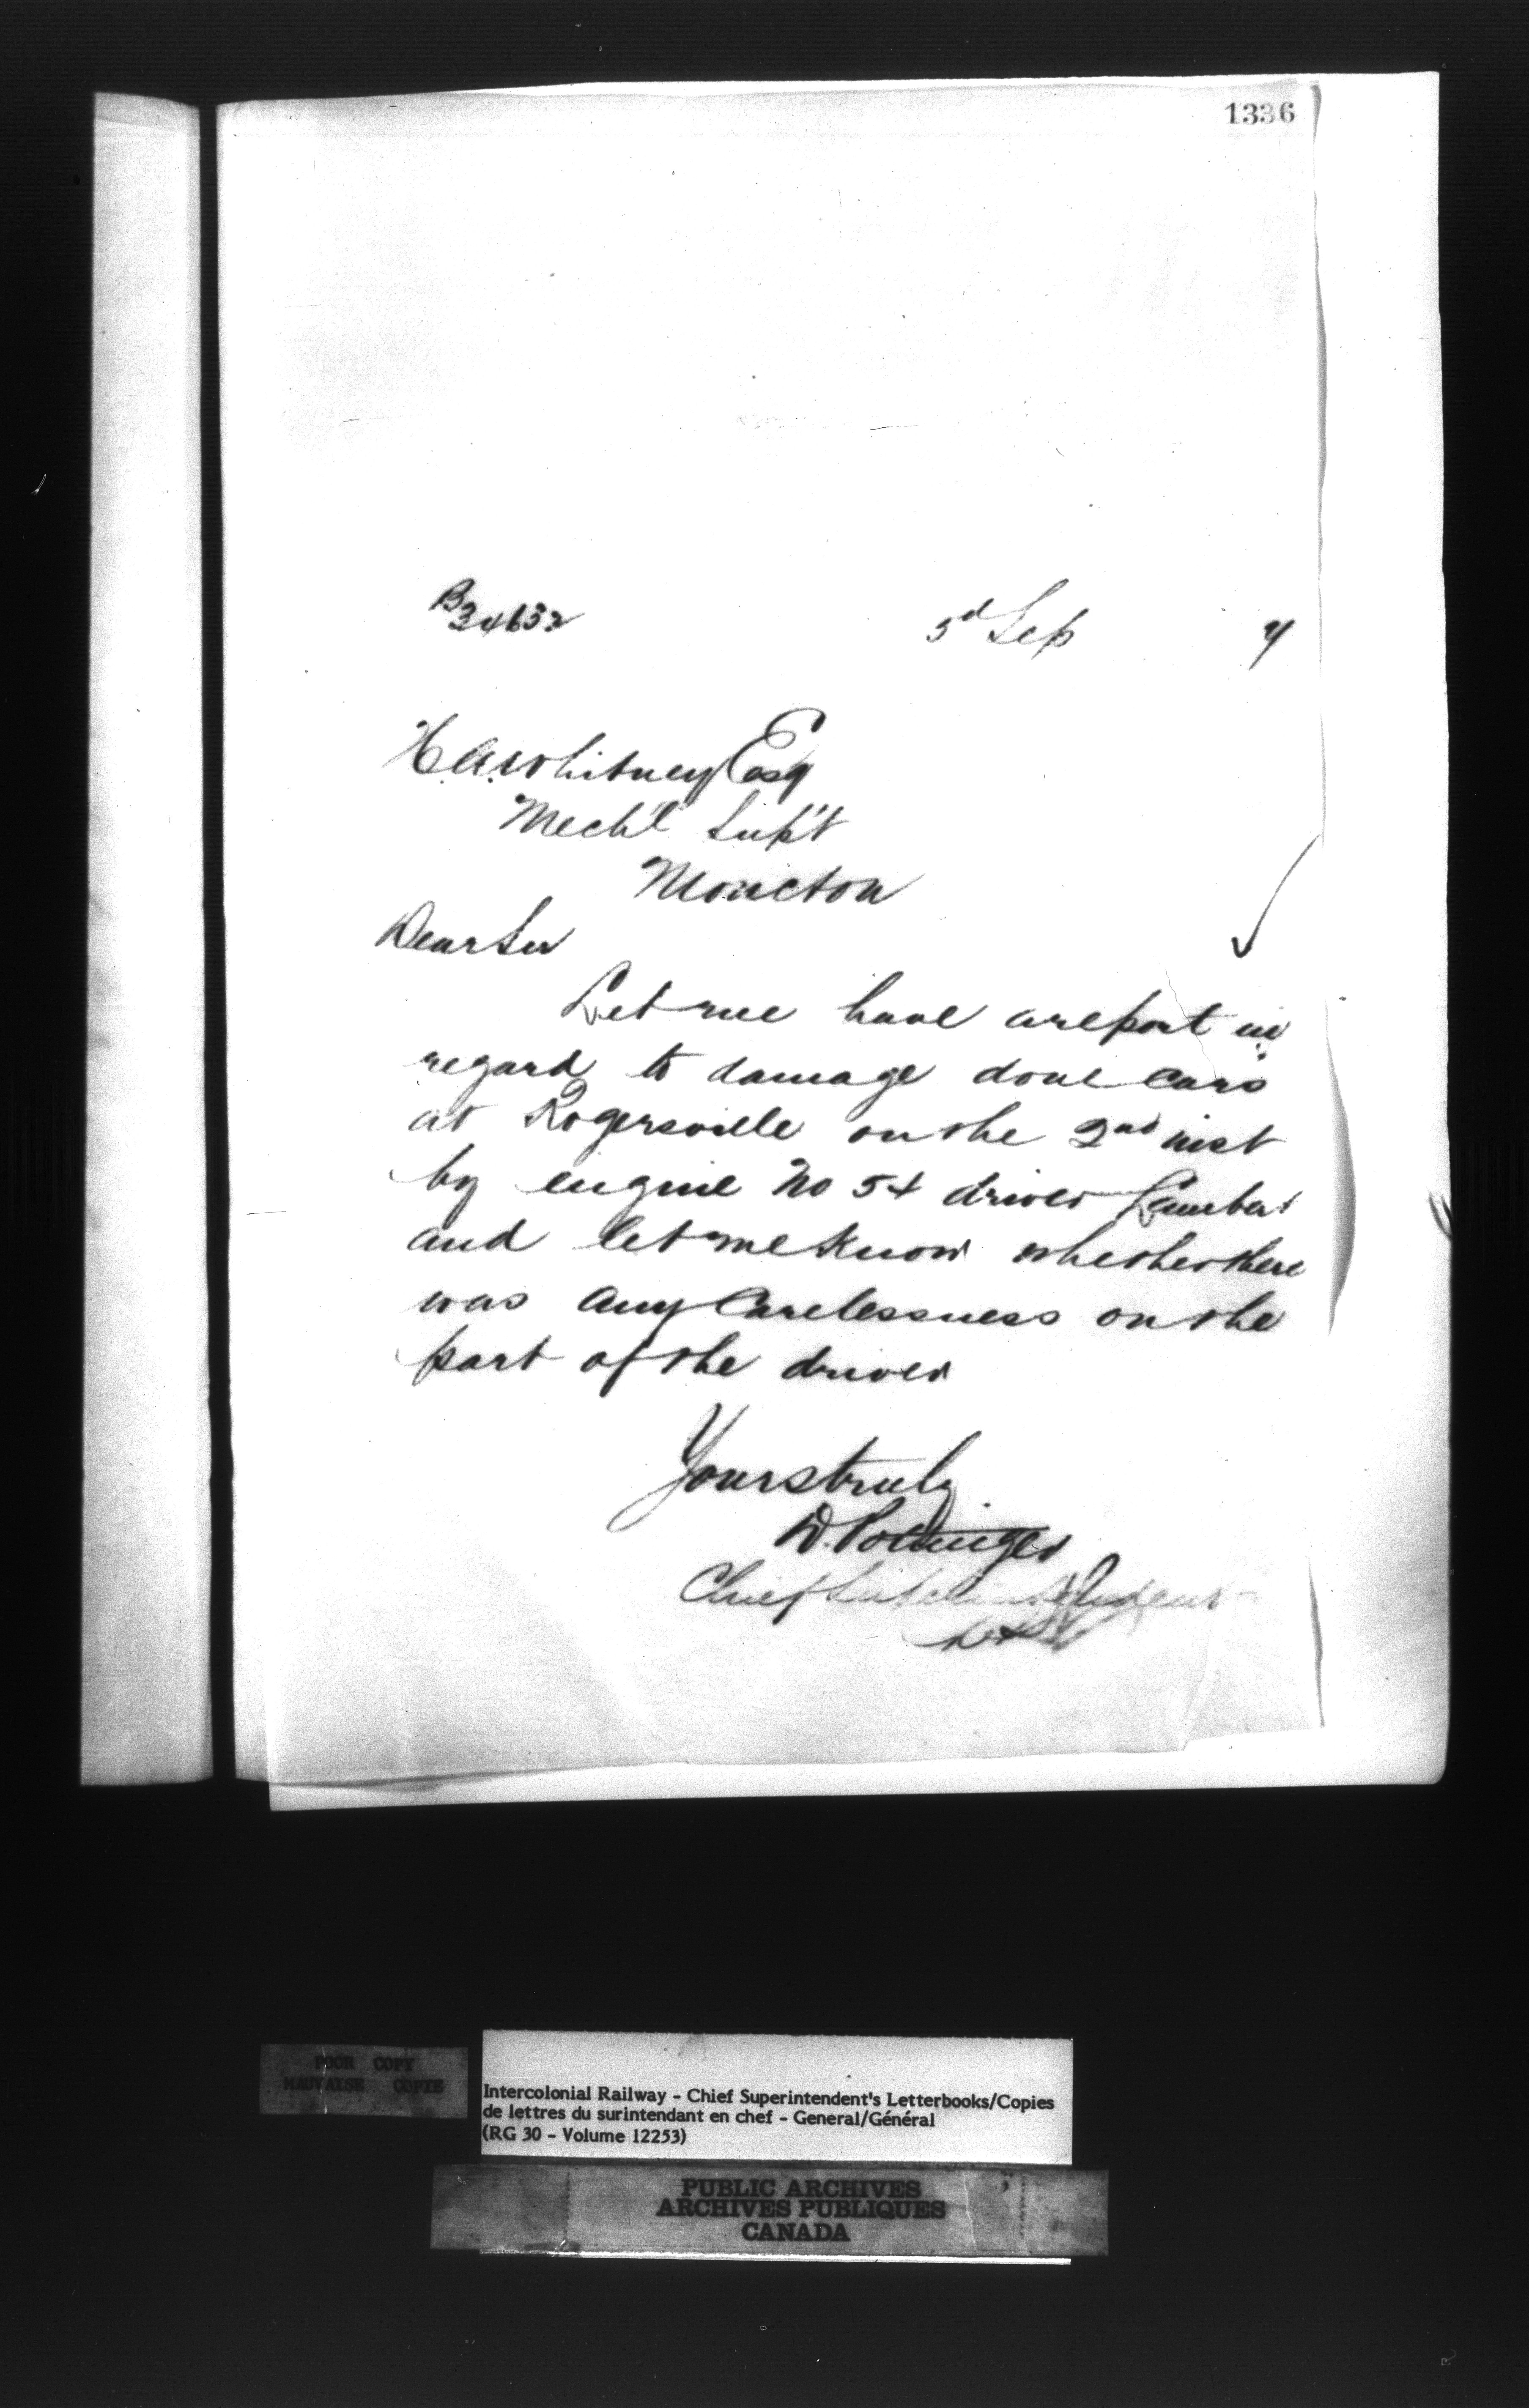 1336
B34632
5d Sep 7
H.A. Whitney Esq
Mech'l Sup't
Moncton
Dear Sir
Let me have a report in
regard to damage done cars
at Rogersville on the 2nd inst
by engine No 54 driver Lambert
and let me know whether there
was any Carelessness on the
part of the driver
Yours truly
D. Pottinger
Chief Superintendent
POOR COPY
MAUVAISE COPIE
Intercolonial Railway - Chief Superintendent's Letterbooks/Copies
de lettres du surintendant en chef - General/Général
(RG 30 - Volume 12253)
PUBLIC ARCHIVES
ARCHIVES PUBLIQUES
CANADA